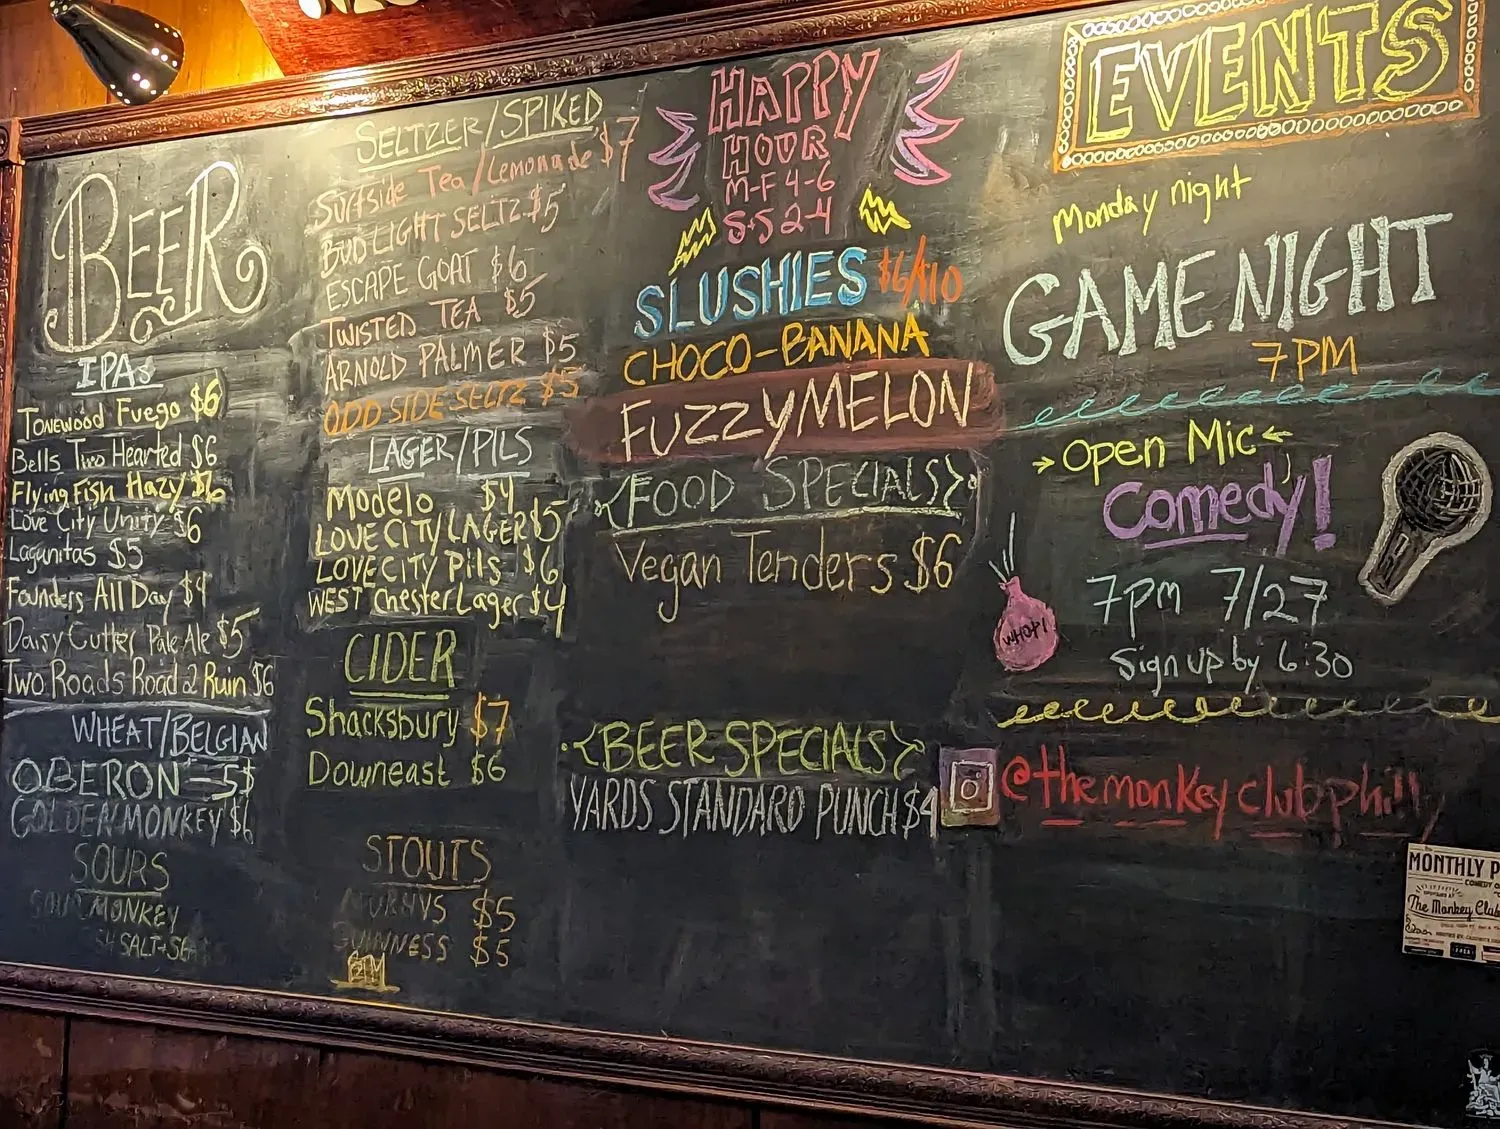 BEER
IPAs
Tonewood Fuego $6
Bells Two Hearted $6
Flying Fish Hazy $6
Love City Unity $6
Lagunitas $5
Founders All Day $4
Daisy Cutter Pale Ale $5
Two Roads Road 2 Ruin $6
WHEAT/BELGIAN
OBERON - 5$
GOLDEN MONKEY $6
SOURS
SOUR MONKEY
SALT+SEA
SELTZER/SPIKED
Surfside Tea/Lemonade $7
BUD LIGHT SELTZ $5
ESCAPE GOAT $6
TWISTED TEA $5
ARNOLD PALMER $5
ODD SIDE SELTZ $5
LAGER/PILS
Modelo $4
LOVE CITY LAGER $5
LOVE CITY Pils $6
WEST Chester Lager $4
CIDER
Shacksbury $7
Downeast $6
STOUTS
$5
GUINNESS $5
HAPPY
HOUR
M-F 4-6
S+S 2-4
SLUSHIES $6/$10
CHOCO-BANANA
FUZZY MELON
FOOD SPECIALS
Vegan Tenders $6
BEER SPECIALS
YARDS STANDARD PUNCH $4
EVENTS
Monday night
GAME NIGHT
7PM
Open Mic
Comedy!
7pm 7/27
Sign up by 6:30
WHOP!
@themonkeyclubphilly
MONTHLY P
COMEDY
The Monkey Club